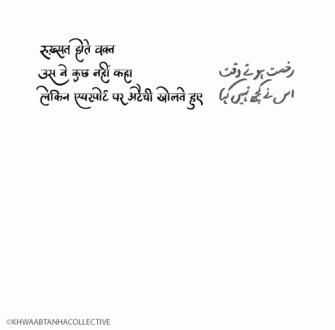 रुख़्सत होते वक़्त
उस ने कुछ नहीं कहा
लेकिन एयरपोर्ट पर अटैची खोलते हुए
رخصت ہوتے وقت
اس نے کچھ نہیں کہا
©KHWAABTANHACOLLECTIVE